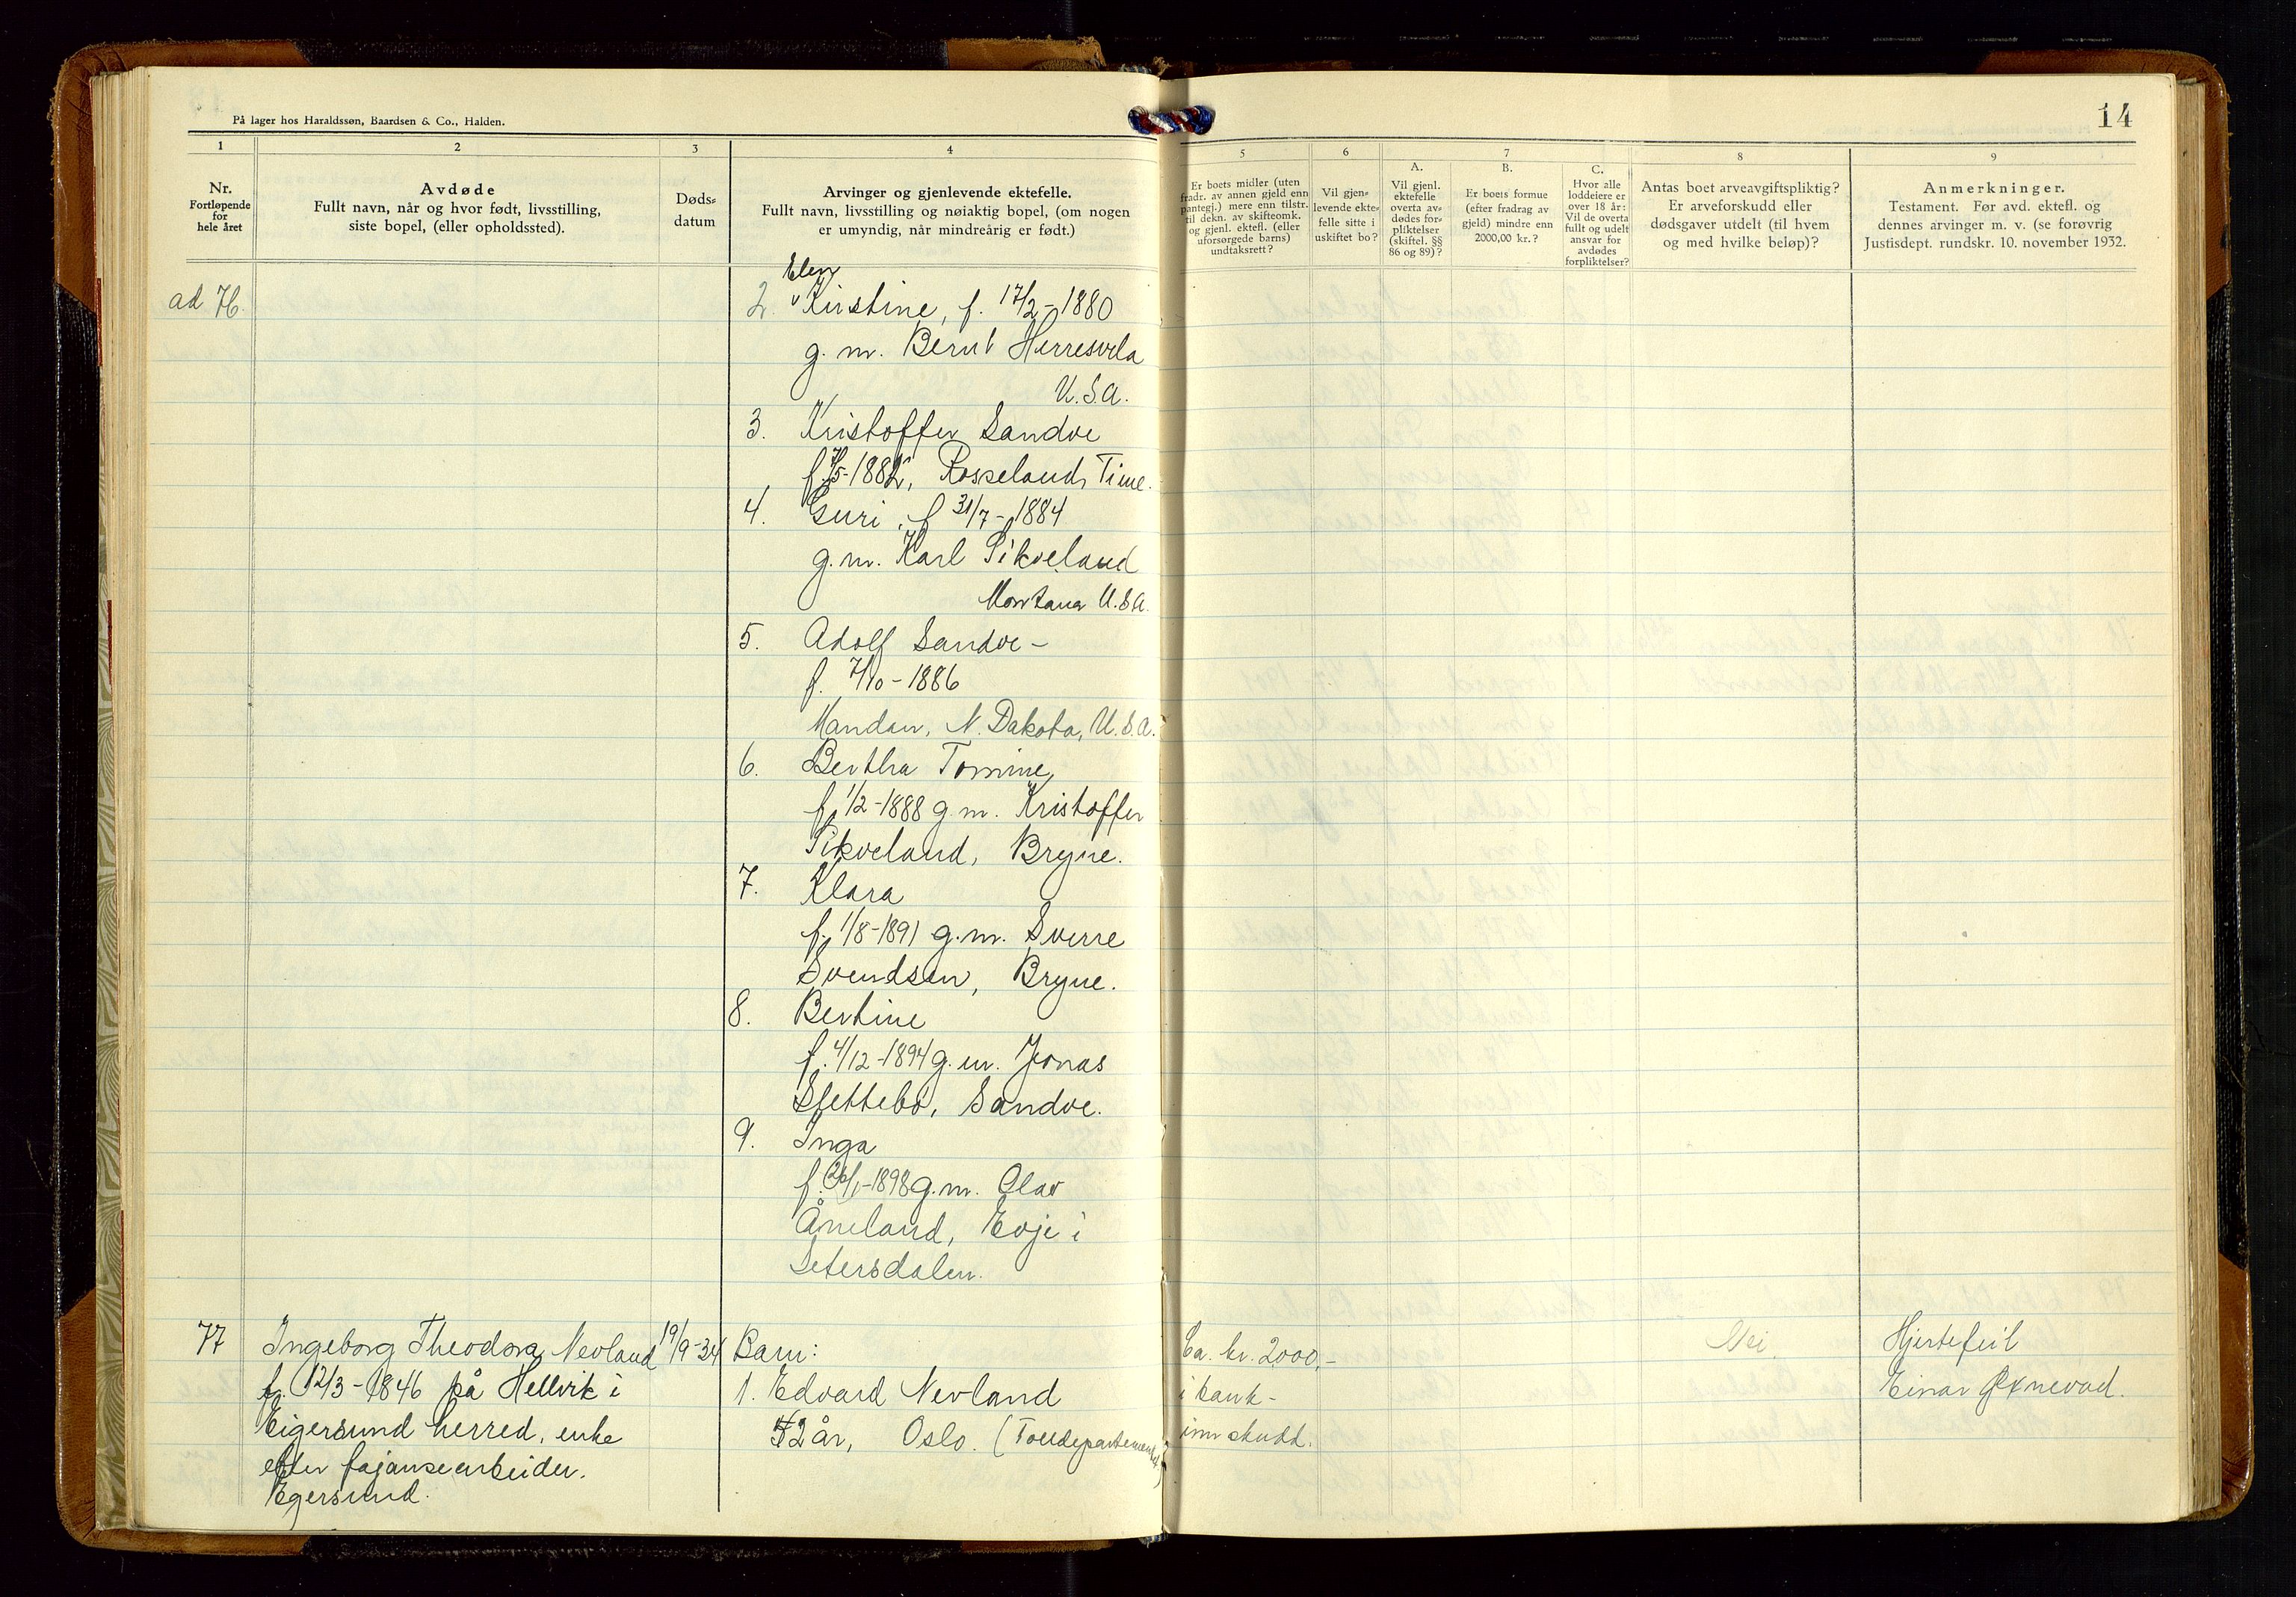 På lager hos Haraldssøn, Baardsen & Co., Halden.
14
1 2 3 4 5 6 7 8 9
Nr.
Fortløpende
for
hele året
Avdøde
Fullt navn, når og hvor født, livsstilling,
siste bopel, (eller opholdssted).
Døds-
datum
Arvinger og gjenlevende ektefelle.
Fullt navn, livsstilling og nøiaktig bopel, (om nogen
er umyndig, når mindreårig er født.)
Er boets midler (uten
fradr. av annen gjeld enn
pantegj.) mere enn tilstr.
til dekn. av skifteomk.
og gjenl. ektef. (eller
uforsørgede barns)
undtaksrett?
Vil gjen-
levende ekte-
felle sitte i
uskiftet bo?
A.
Vil gjenl.
ektefelle
overta av-
dødes for-
pliktelser
(skiftel. §§
86 og 89)?
B.
Er boets formue
(efter fradrag av
gjeld) mindre enn
2000,00 kr.?
C.
Hvor alle
loddeiere er
over 18 år:
Vil de overta
fullt og udelt
ansvar for
avdødes
forpliktelser?
Antas boet arveavgiftspliktig?
Er arveforskudd eller
dødsgaver utdelt (til hvem
og med hvilke beløp)?
Anmerkninger.
Testament. Før avd. ektefl. og
dennes arvinger m. v. (se forøvrig
Justisdept. rundskr. 10. november 1932.
ad 76.
Elen
2. Kirstine, f. 17/2-1880
g. m. Bernt Herresvela
U.S.A.
3. Kristoffer Sandve
f. 7/5-1882, Rosseland, Time.
4. Guri, f 31/7-1884
g. m. Karl Sikveland
Montana U.S.A.
5. Adolf Sandve-
f. 7/10-1886
Mandan, N. Dakota, U.S.A.
6. Bertha Tomine,
f. 1/2-1888 g. m. Kristoffer
Sikveland, Bryne.
7. Klara
f. 1/8-1891 g. m. Sverre
Svendsen, Bryne.
8. Bertine
f. 4/12-1894 g. m. Jonas
Slettebø, Sandve.
9. Inga
f. 26/1-1898 g. m. Olav
Åneland, Evje i
Setersdalen.
77 Ingeborg Theodora Nevland 19/9-34 Barn:
f. 12/3-1846 på Hellvik i
Eigersund herred, enke
efter fajansearbeider.
Egersund.
1. Edvard Nevland
42 år, Oslo. (Tolldepartementet)
Ca. kr. 2000,-
i bank-
innskudd.
Nei.
Hjertefeil
Einar Øxnevad.